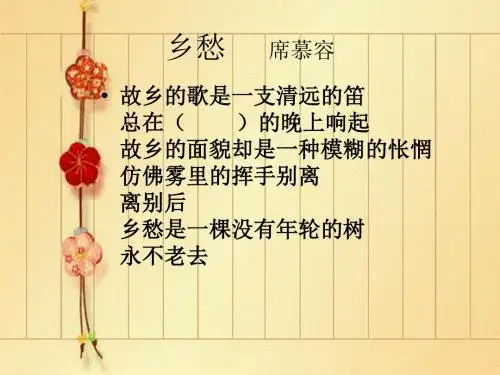 乡愁 席慕容
• 故乡的歌是一支清远的笛
总在（ ）的晚上响起
故乡的面貌却是一种模糊的怅惘
仿佛雾里的挥手别离
离别后
乡愁是一棵没有年轮的树
永不老去